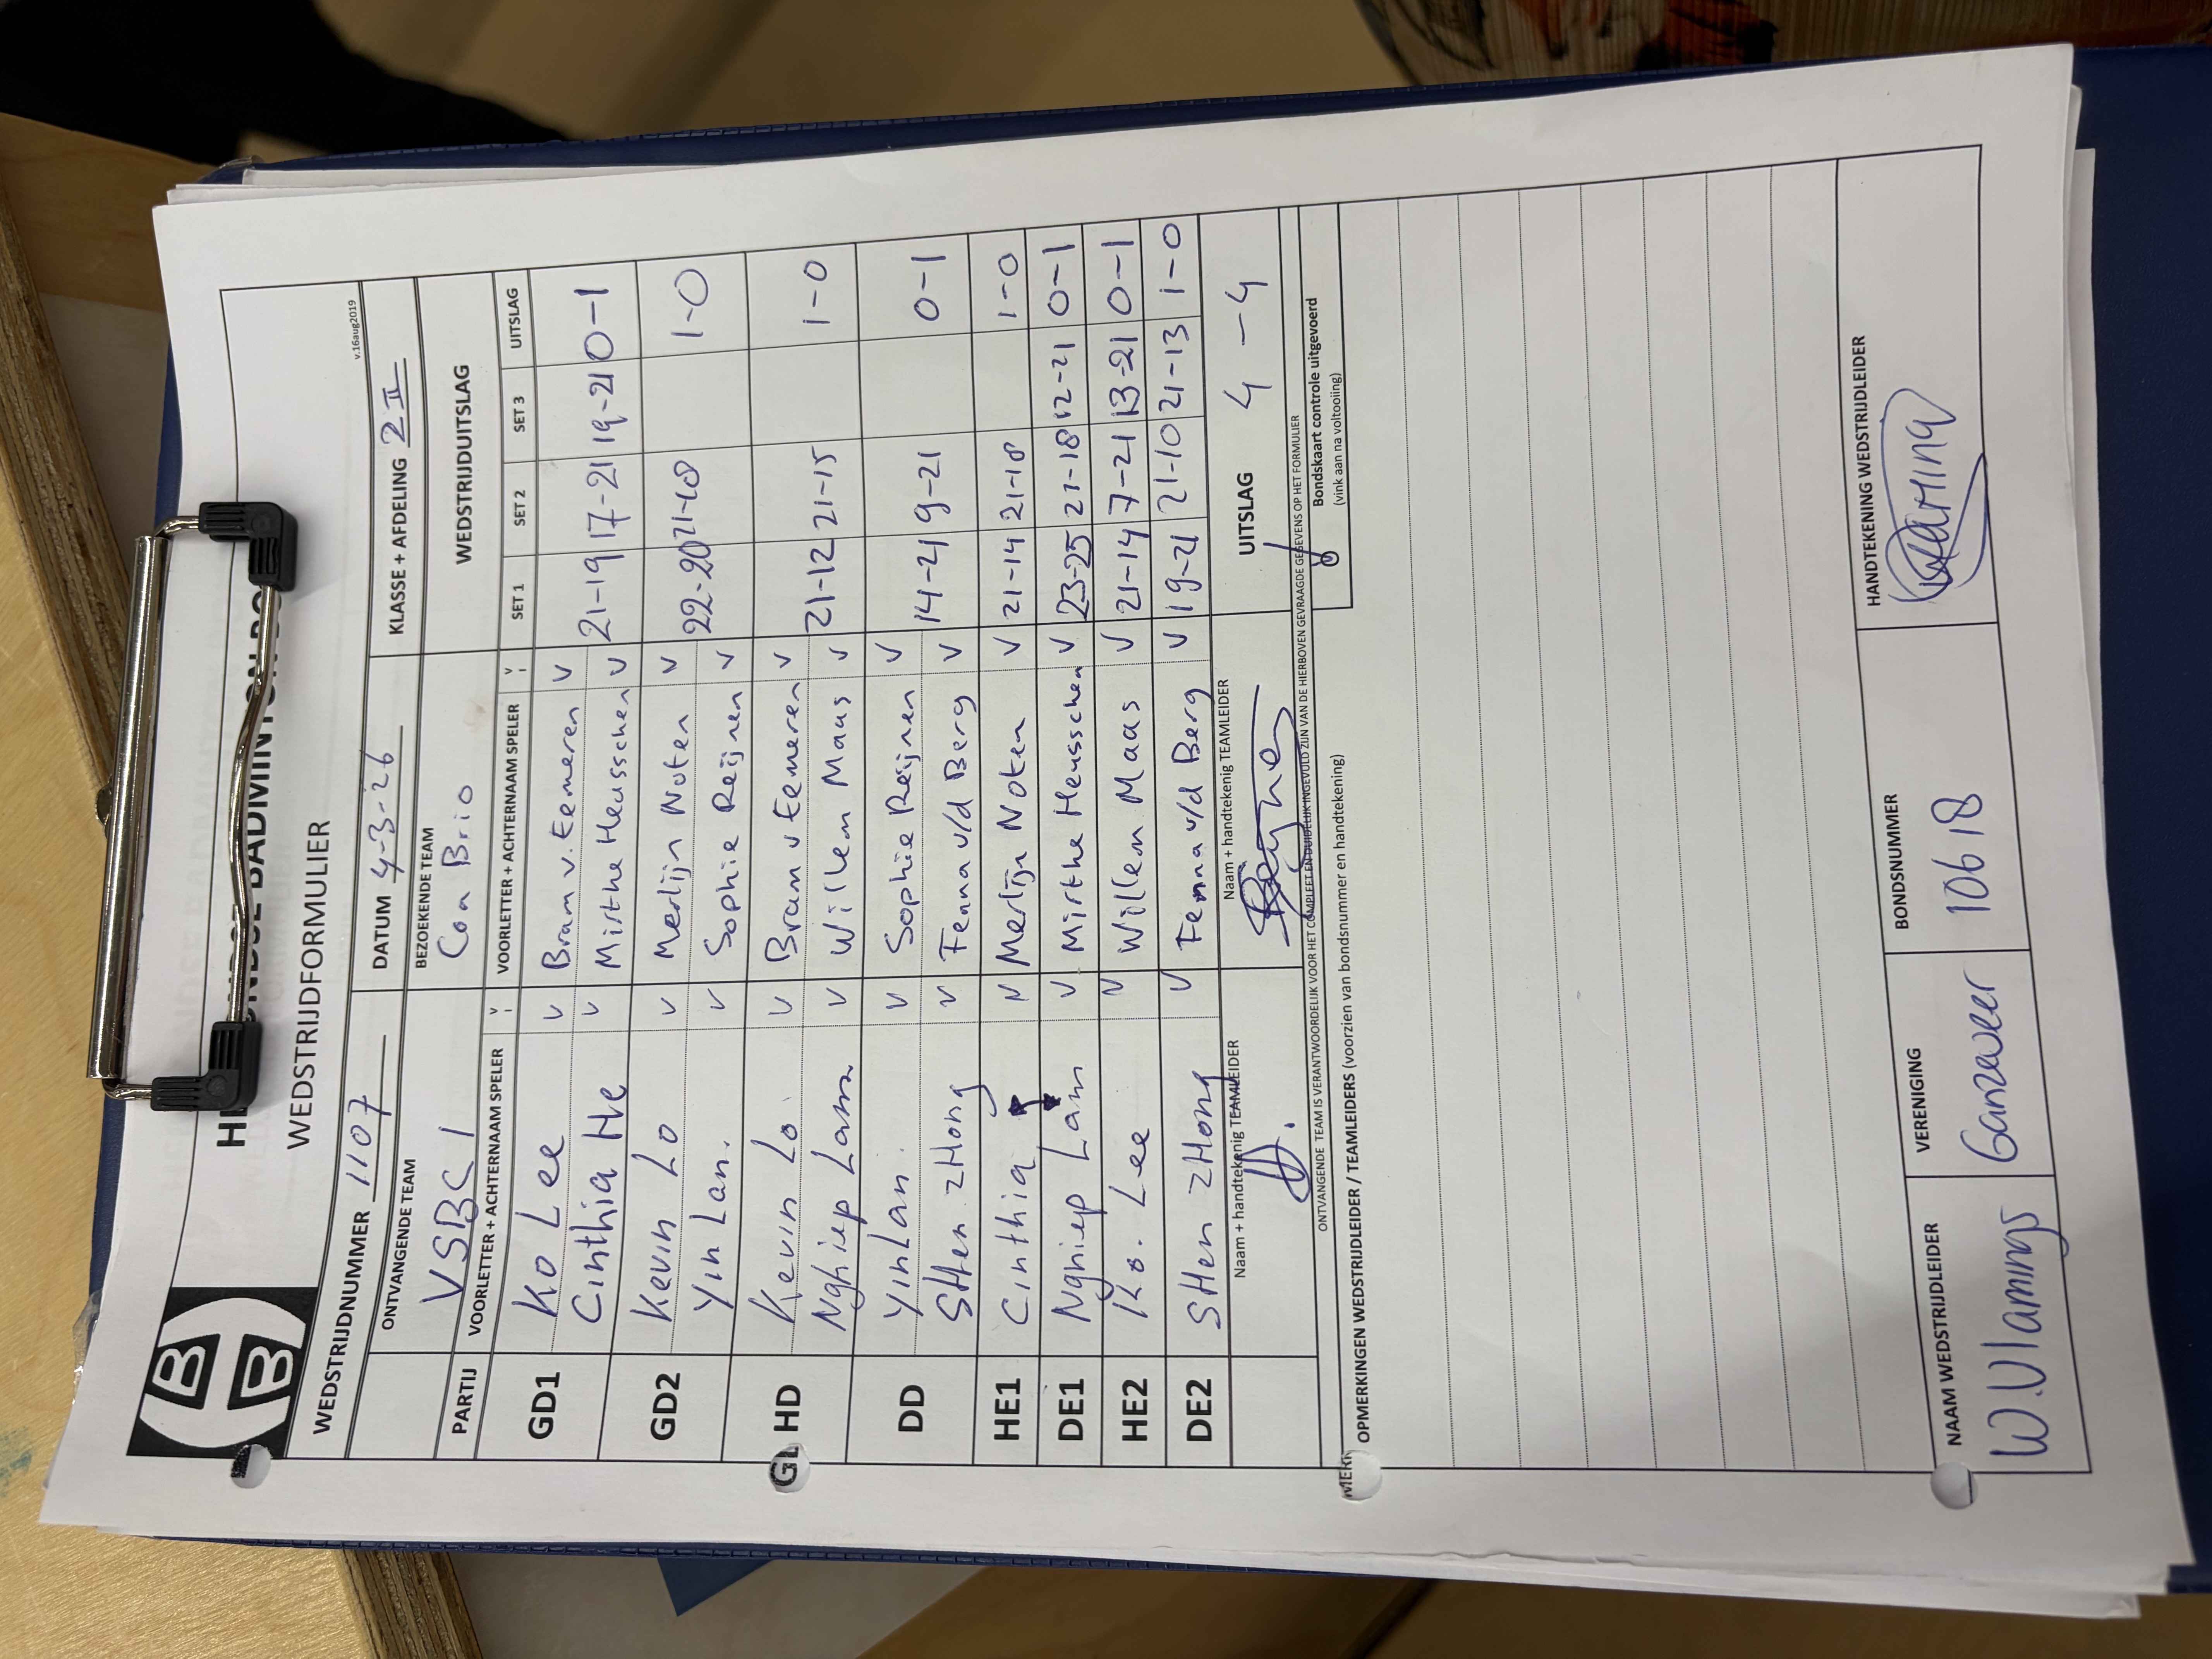 WEDSTRIJDFORMULIER
v.16aug2019
WEDSTRIJDNUMMER 1107 DATUM 4-3-26 KLASSE + AFDELING 2 II
ONTVANGENDE TEAM BEZOEKENDE TEAM WEDSTRIJDUITSLAG
VSBC 1 Con Brio
PARTIJ VOORLETTER + ACHTERNAAM SPELER V VOORLETTER + ACHTERNAAM SPELER V SET 1 SET 2 SET 3 UITSLAG
GD1 Ko Lee V Bram v. Eemeren V
Cinthia He V Mirthe Heusschen V 21-19 17-21 19-21 0-1
GD2 Kevin Lo V Merlijn Noten V
Yin Lan. V Sophie Reijnen V 22-20 21-18 1-0
HD Kevin Lo. V Bram v Eemeren V
Nghiep Lam V Willem Maas V 21-12 21-15 1-0
DD Yin Lan. V Sophie Reijnen V
SHen ZHong V Fenna v/d Berg V 14-21 9-21 0-1
HE1 Cinthia V Merlijn Noten V 21-14 21-18 1-0
DE1 Nghiep Lam V Mirthe Heusschen V 23-25 21-18 12-21 0-1
HE2 Ko. Lee V Willem Maas V 21-14 7-21 13-21 0-1
DE2 SHen ZHong V Fenna v/d Berg V 19-21 21-10 21-13 1-0
Naam + handtekenig TEAMLEIDER Naam + handtekenig TEAMLEIDER UITSLAG 4-4
ONTVANGENDE TEAM IS VERANTWOORDELIJK VOOR HET COMPLEET EN DUIDELIJK INGEVULD ZIJN VAN DE HIERBOVEN GEVRAAGDE GEGEVENS OP HET FORMULIER
Bondskaart controle uitgevoerd
(vink aan na voltooiing)
OPMERKINGEN WEDSTRIJDLEIDER / TEAMLEIDERS (voorzien van bondsnummer en handtekening)
NAAM WEDSTRIJDLEIDER VERENIGING BONDSNUMMER HANDTEKENING WEDSTRIJDLEIDER
W. Vlamings Ganzeveer 10618